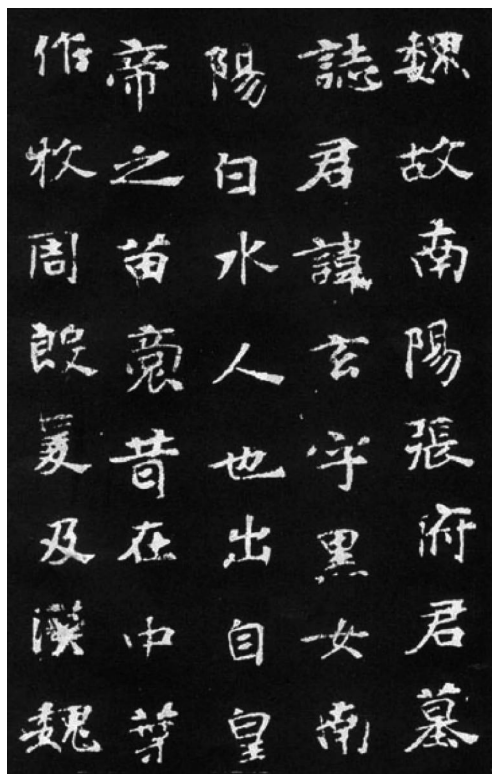 魏故南陽張府君墓
誌君諱玄字黑女南
陽白水人也出自皇
帝之苗裔昔在中葉
作牧周殷爰及漢魏